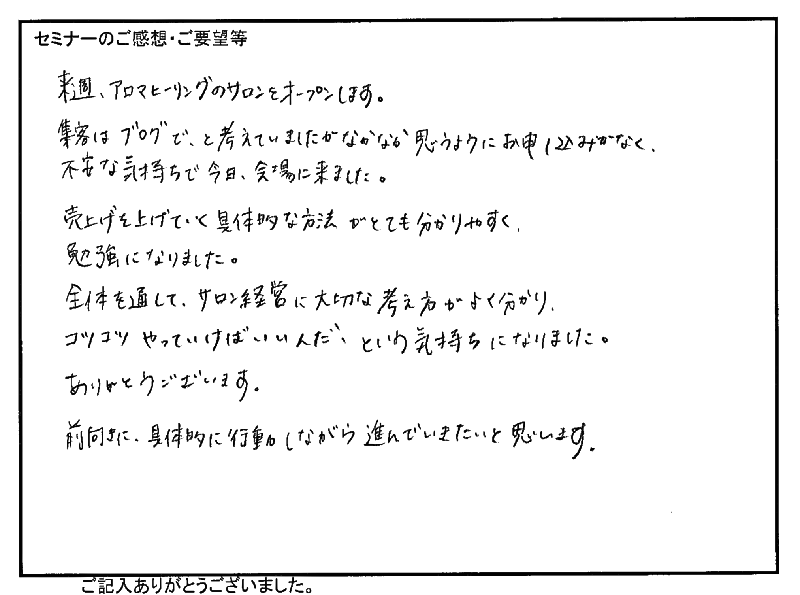 セミナーのご感想・ご要望等
来週、アロマヒーリングのサロンをオープンします。
集客はブログで、と考えていましたがなかなか思うようにお申し込みがなく、
不安な気持ちで今日、会場に来ました。
売上げを上げていく具体的な方法がとても分かりやすく、
勉強になりました。
全体を通して、サロン経営に大切な考え方がよく分かり、
コツコツやっていけばいいんだ、という気持ちになりました。
ありがとうございます。
前向きに、具体的に行動しながら進んでいきたいと思います。
ご記入ありがとうございました。